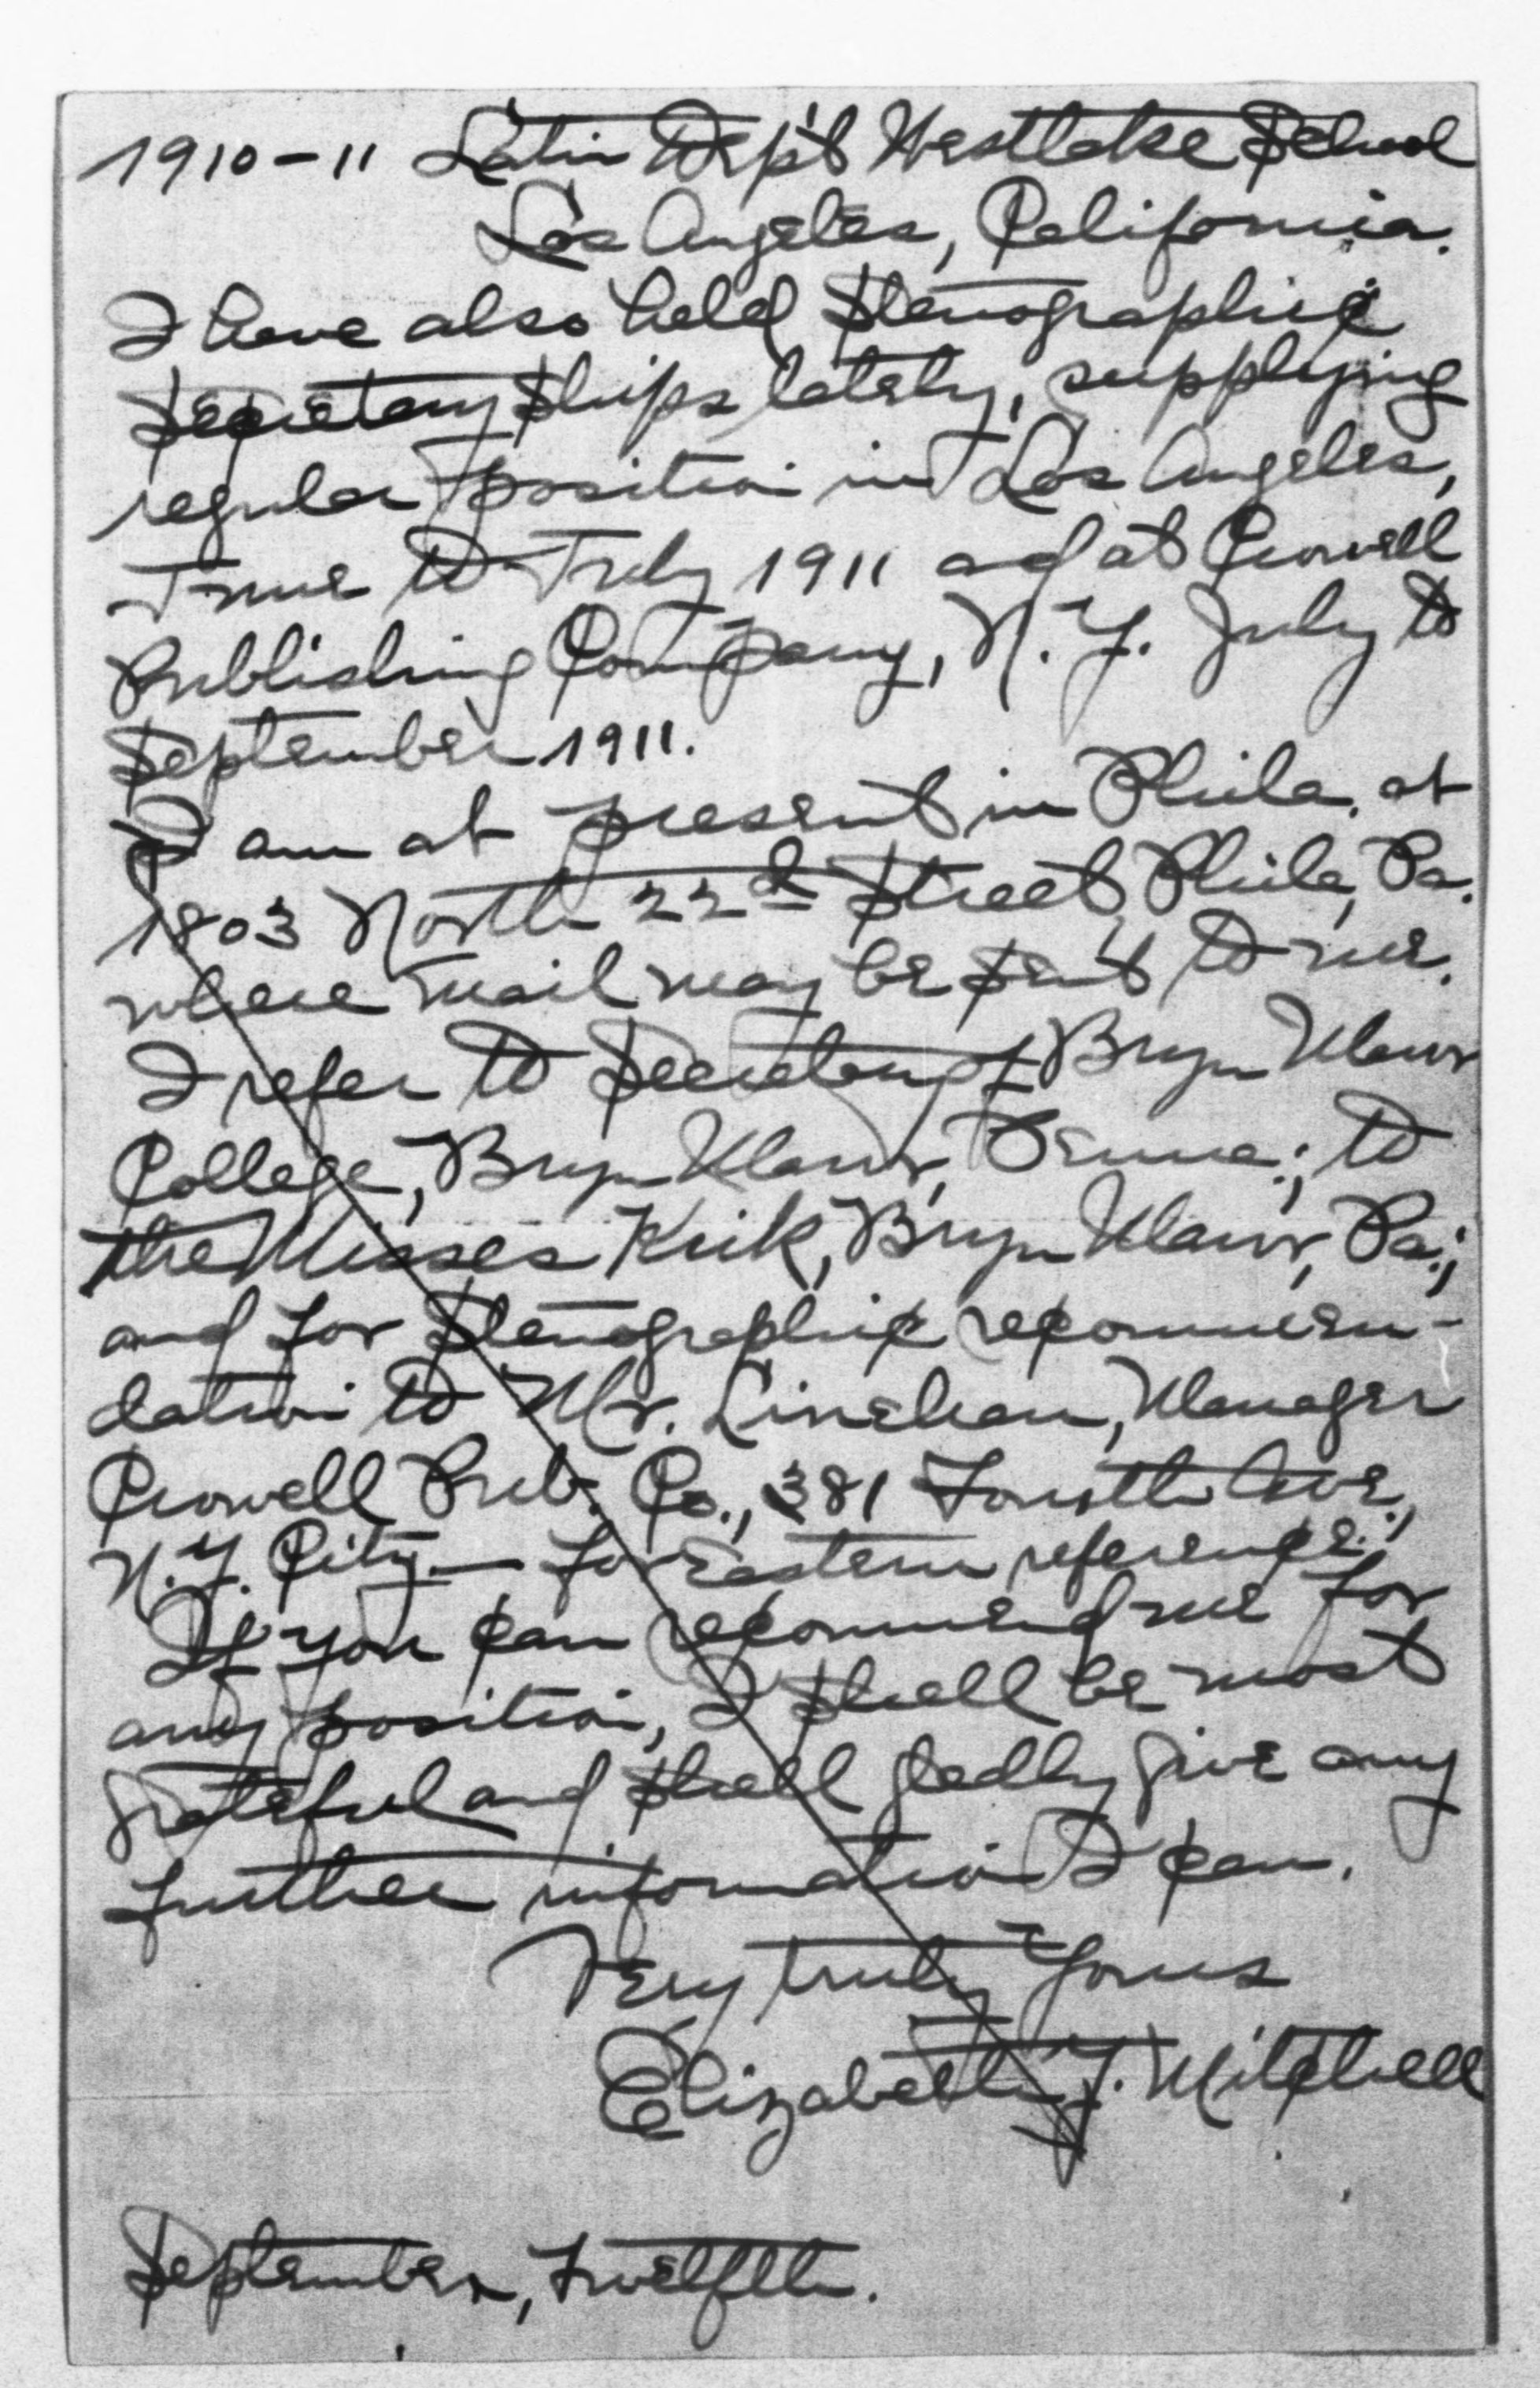 1910-11 Latin Dep't Westlake School
Los Angeles, California.
I have also held Stenographic
Secretaryships lately, supplying
regular position in Los Angeles,
June to July 1911 and at Crowell
Publishing Company, N.Y. July to
September 1911.
I am at present in Phila. at
1803 North 22d Street, Phila, Pa.
where mail may be sent to me.
I refer to Secretary of Bryn Mawr
College, Bryn Mawr, Penna.; to
the Misses Kirk, Bryn Mawr, Pa.;
and for Stenographic recommen-
dation to Mr. Linehan, Manager
Crowell Pub. Co., 381 Fourth Ave.,
N.Y. City - for Eastern reference.
If you can recommend me for
any position, I shall be most
grateful and shall gladly give any
further information I can.
Very truly yours
Elizabeth Y. Mitchell
September, twelfth.